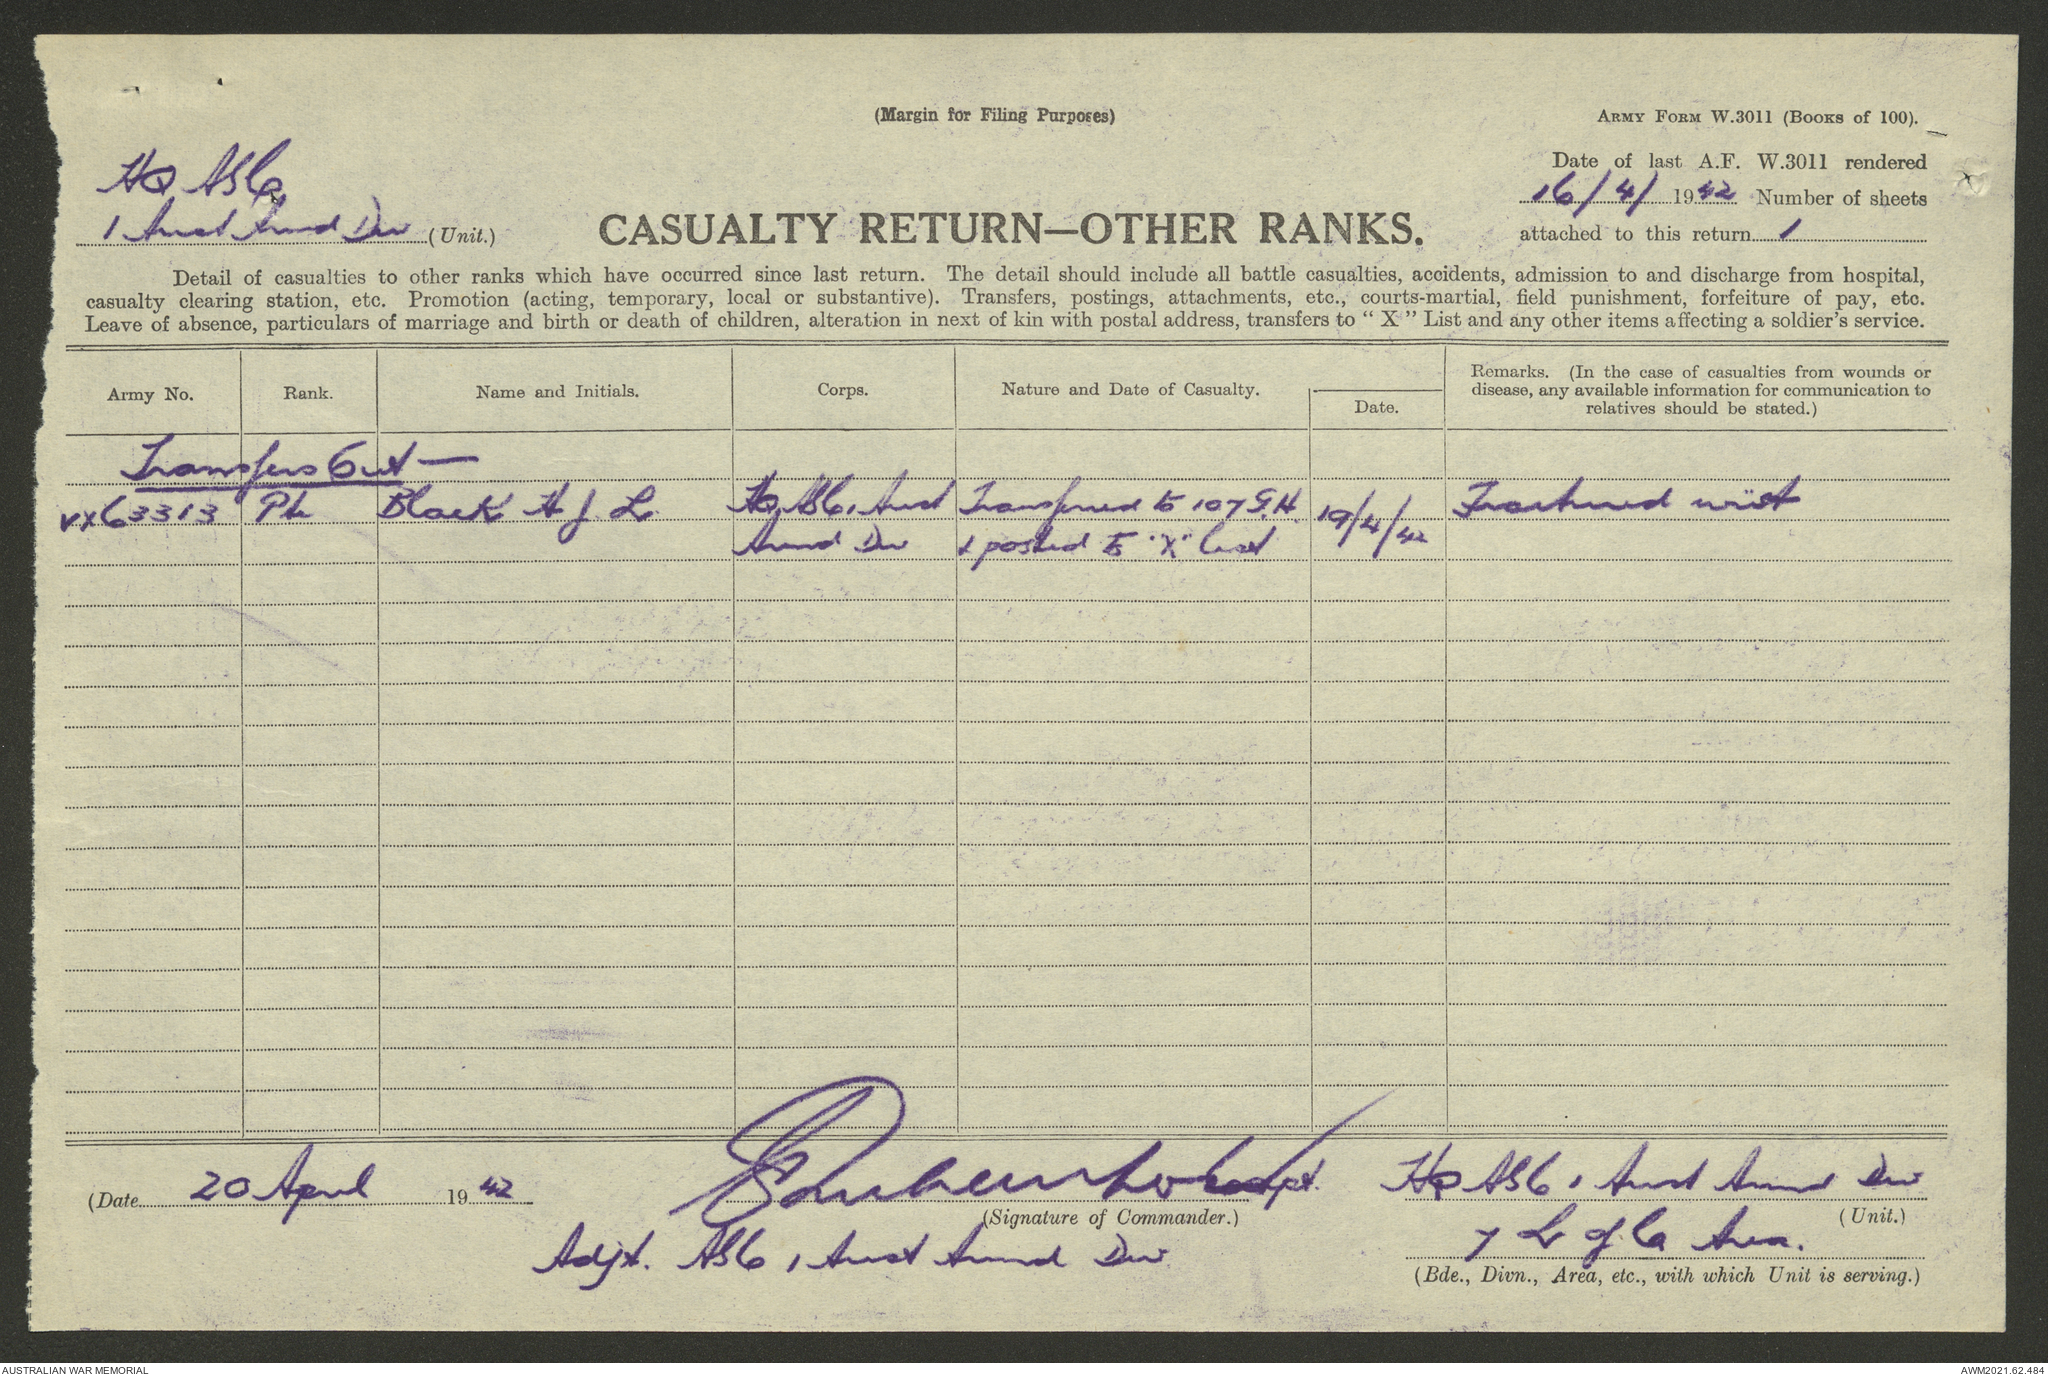 (Margin for Filing Purposes)
ARMY FORM W.3011 (BOOKS of 100).
HQ ASC
1 Aust Armd Div (Unit.)
CASUALTY RETURN—OTHER RANKS.
Date of last A.F. W.3011 rendered
16/4/1942 Number of sheets
attached to this return 1
Detail of casualties to other ranks which have occurred since last return. The detail should include all battle casualties, accidents, admission to and discharge from hospital,
casualty clearing station, etc. Promotion (acting, temporary, local or substantive). Transfers, postings, attachments, etc., courts-martial, field punishment, forfeiture of pay, etc.
Leave of absence, particulars of marriage and birth or death of children, alteration in next of kin with postal address, transfers to “ X ” List and any other items affecting a soldier's service.
Army No. Rank. Name and Initials. Corps. Nature and Date of Casualty. Date. Remarks. (In the case of casualties from wounds or
disease, any available information for communication to
relatives should be stated.)
Transfers Out —
VX63313 Pte Black H J L HQ ASC 1 Aust Transferred to 107 G.H. 19/4/42 Fractured wrist
Armd Div & posted to "X" list
(Date 20 April 1942
Capt.
(Signature of Commander.)
Adjt. ASC 1 Aust Armd Div
HQ ASC 1 Aust Armd Div
(Unit.)
7 L of C Area.
(Bde., Divn., Area, etc., with which Unit is serving.)
AUSTRALIAN WAR MEMORIAL
AWM2021.62.484